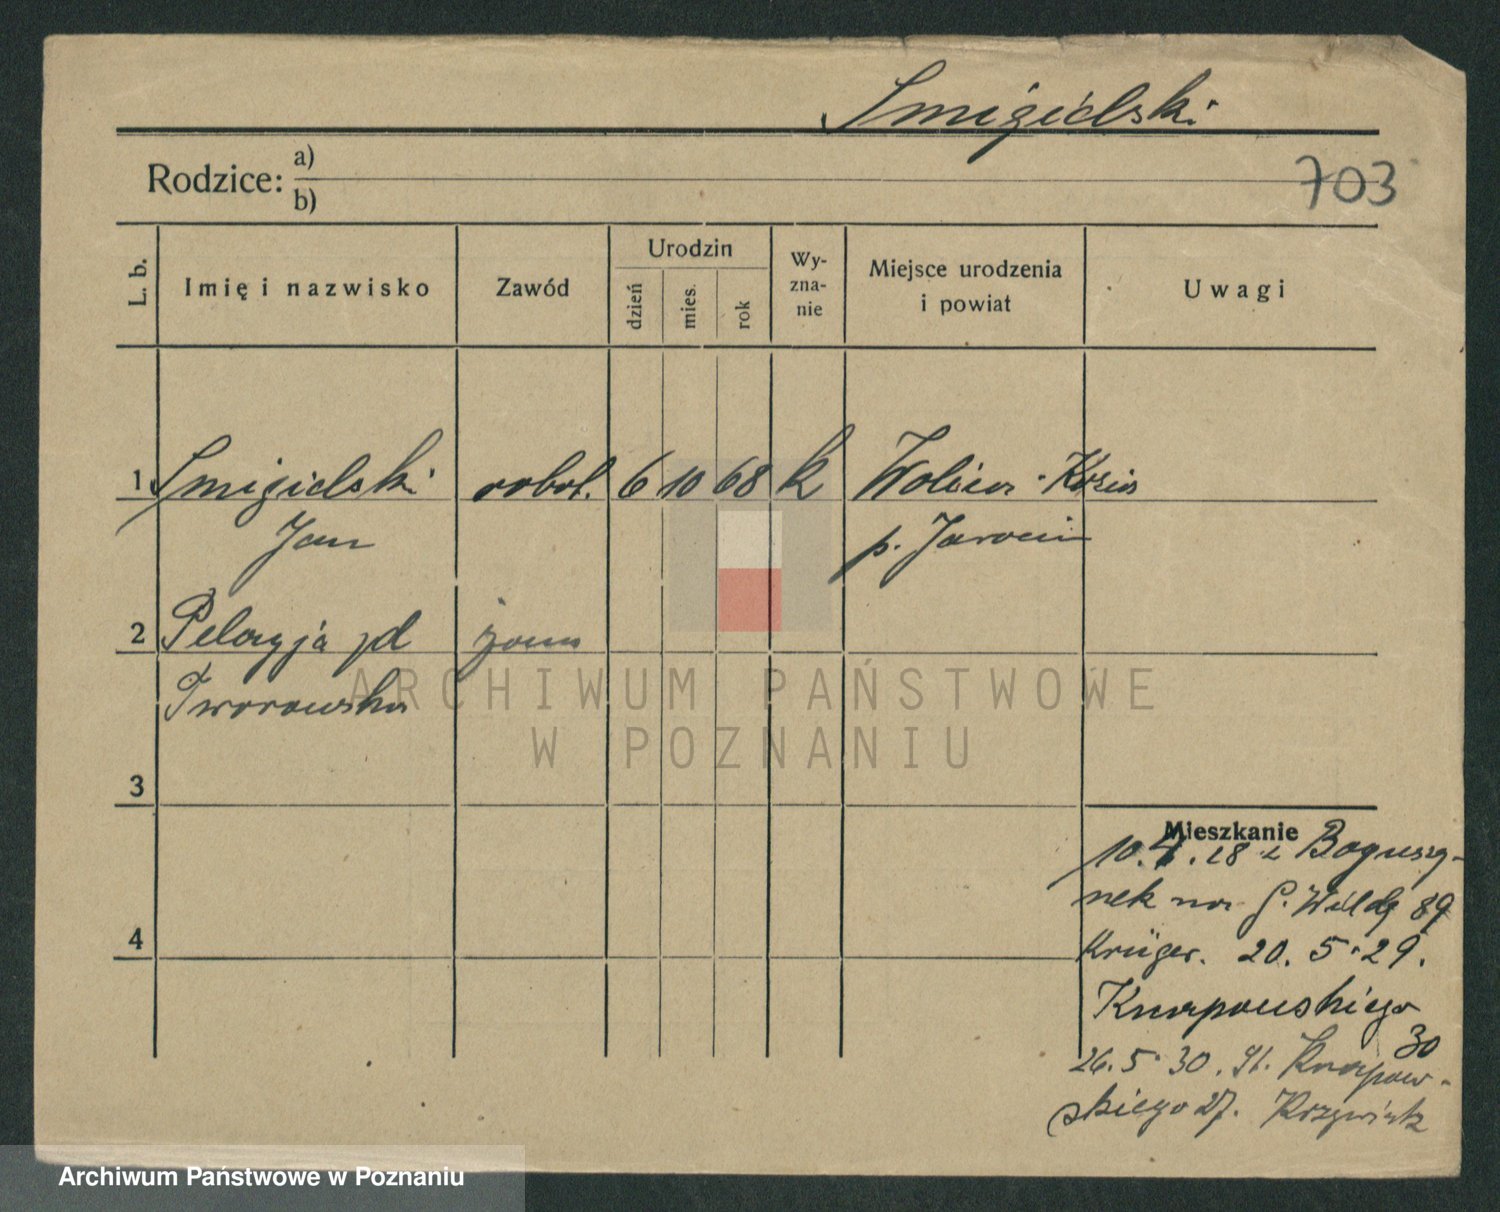 Smigielski
Rodzice: a)
b)
703
L. b.
Imię i nazwisko
Zawód
Urodzin
dzień
mies.
rok
Wy-
zna-
nie
Miejsce urodzenia
i powiat
Uwagi
1 Smigielski robot. 6 10 68 k Wolica Kozia
Jan p. Jarocin
2 Pelagja zd żona
Tworowska
3
4
Mieszkanie
10.4.28 z Boguszy-
nek na G. Wildę 89
Krüger. 20.5.29.
Knapowskiego
30
26.5.30. Knapow-
skiego 27.
ARCHIWUM PAŃSTWOWE
W POZNANIU
Archiwum Państwowe w Poznaniu